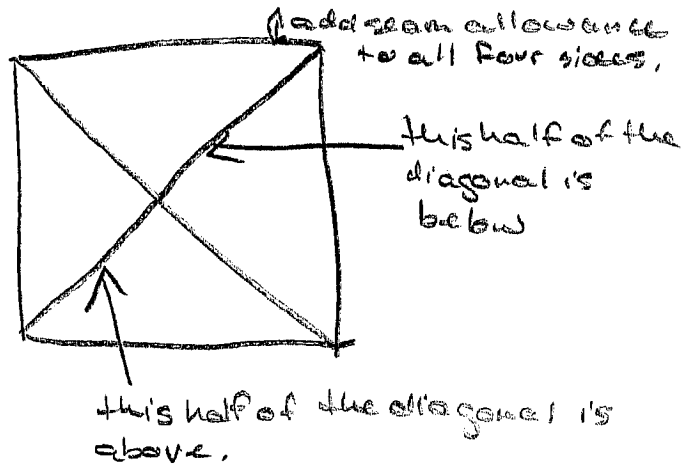 add seam allowance
to all four sides.
this half of the
diagonal is
below
this half of the diagonal is
above.